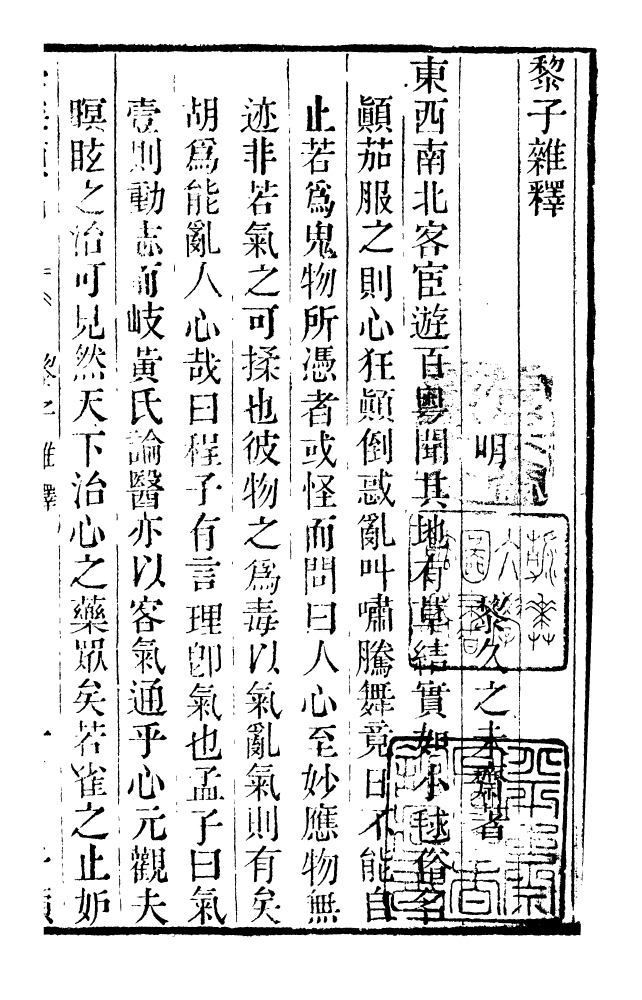 黎子雜釋
明　黎久之未齋著
東西南北客宦遊百粵聞其地有草結實如小毬俗名
顚茄服之則心狂顚倒惑亂叫嘯騰舞竟日不能自
止若爲鬼物所憑者或怪而問曰人心至妙應物無
迹非若氣之可揉也彼物之爲毒以氣亂氣則有矣
胡爲能亂人心哉曰程子有言理卽氣也孟子曰氣
壹則動志而岐黃氏論醫亦以客氣通乎心元觀夫
瞑眩之治可見然天下治心之藥眾矣若雀之止妒
黎子雜釋